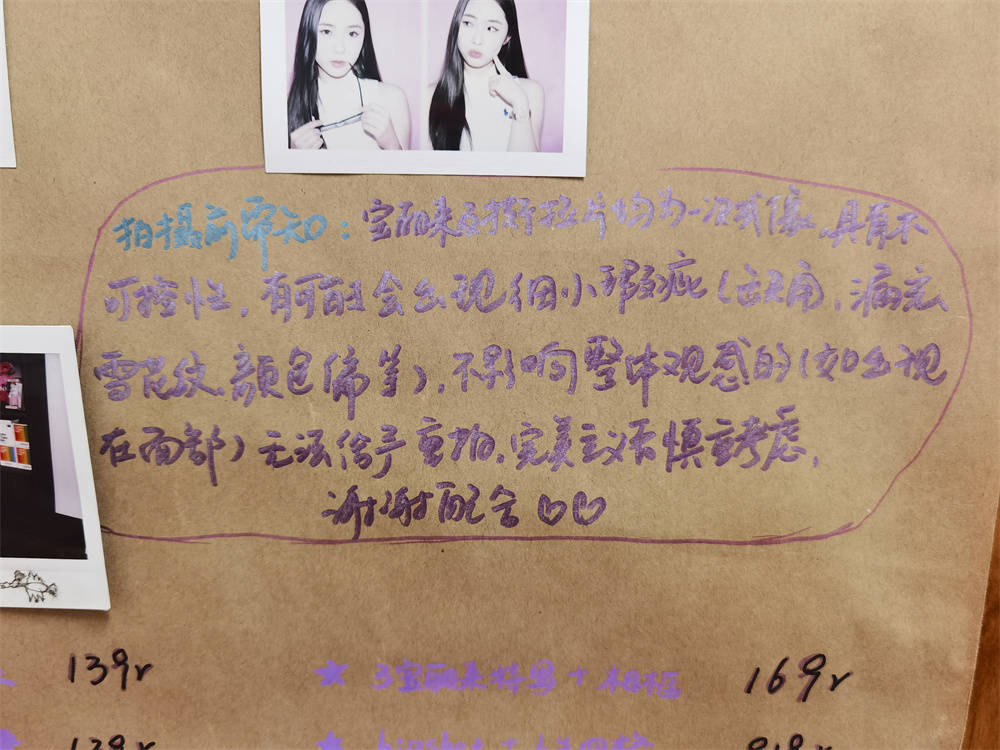 拍摄前需知：宝丽来及撕拉片均为一次成像，具有不
可控性，有可能会出现细小瑕疵（缺角、漏光、
雪花纹、颜色偏等），不影响整体观感的（如出现
在面部）无法给予重拍，完美主义者慎重考虑，
谢谢配合
139r
★ 3宝丽来 + 相框 169r
139r